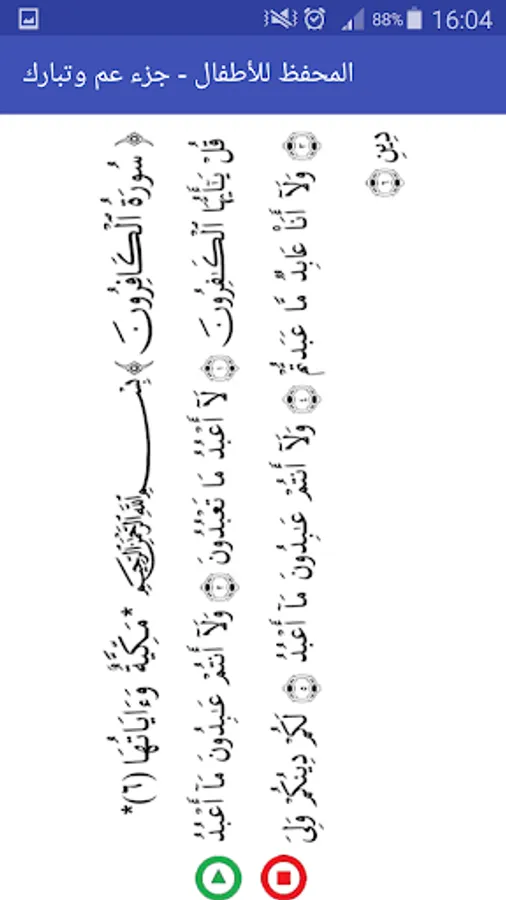 88% 16:04
المحفظ للأطفال - جزء عم وتبارك
﴿ سُورَةُ الْكَافِرُونَ ﴾ بِسْمِ اللَّهِ الرَّحْمَنِ الرَّحِيمِ *مَكِّيَّةٌ وَءَايَاتُهَا (٦)*
قُلْ يَٰٓأَيُّهَا ٱلْكَٰفِرُونَ ١ لَآ أَعْبُدُ مَا تَعْبُدُونَ ٢ وَلَآ أَنتُمْ عَٰبِدُونَ مَآ أَعْبُدُ
٣ وَلَآ أَنَا۠ عَابِدٌ مَّا عَبَدتُّمْ ٤ وَلَآ أَنتُمْ عَٰبِدُونَ مَآ أَعْبُدُ ٥ لَكُمْ دِينُكُمْ وَلِىَ
دِينِ ٦